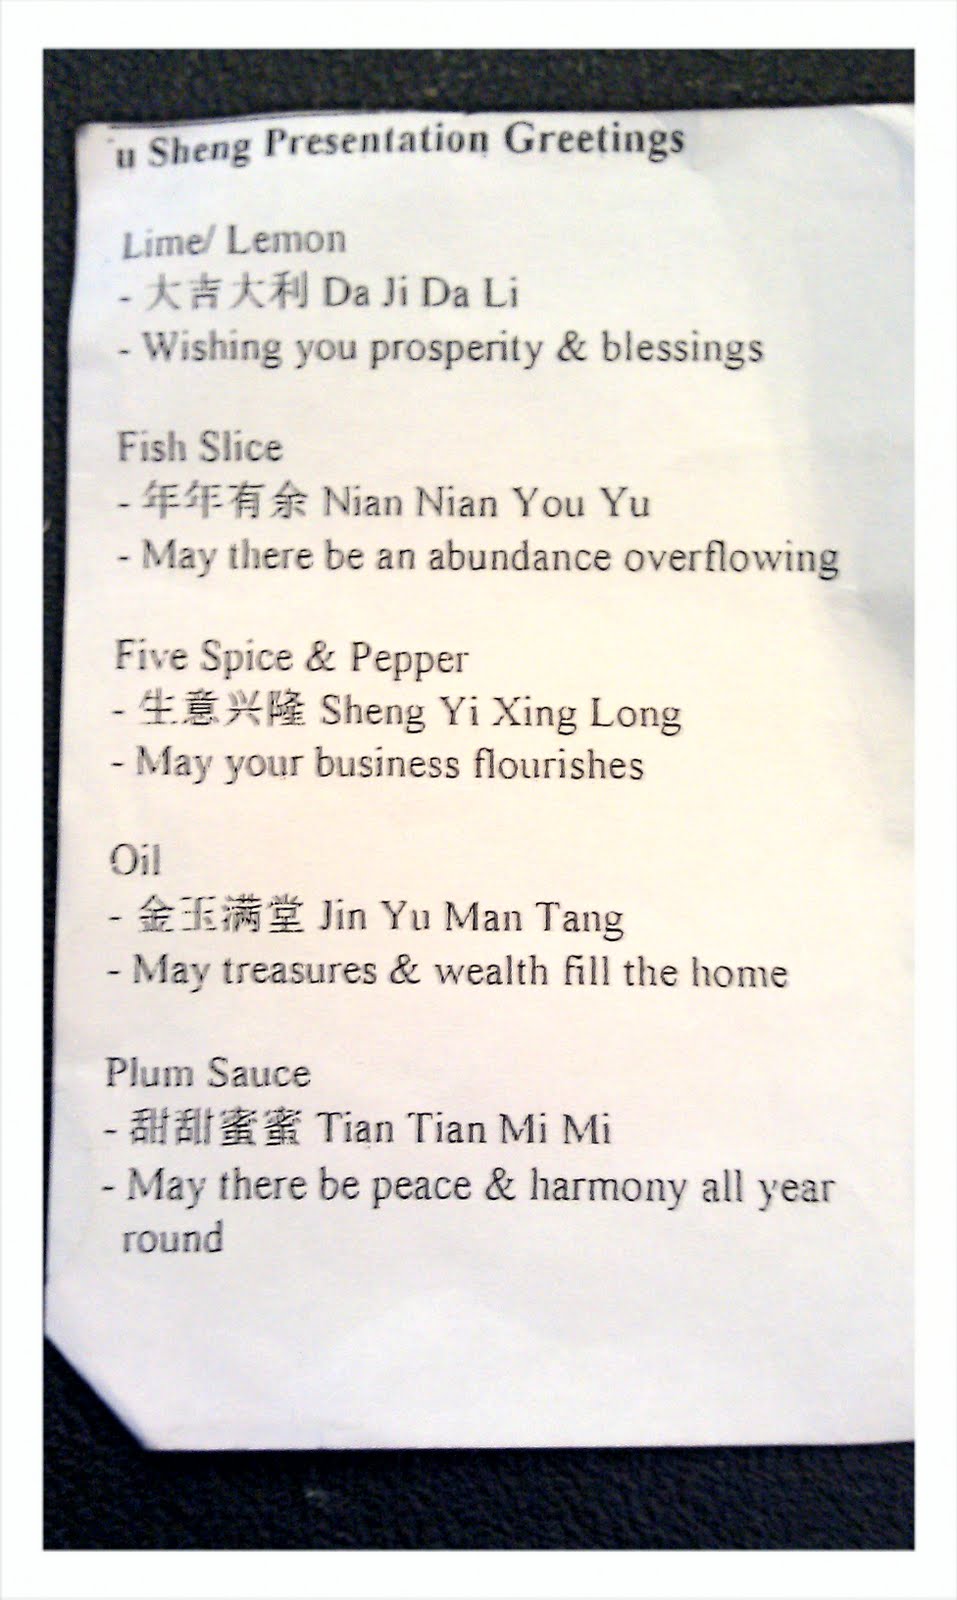 u Sheng Presentation Greetings
Lime/ Lemon
- 大吉大利 Da Ji Da Li
- Wishing you prosperity & blessings
Fish Slice
- 年年有余 Nian Nian You Yu
- May there be an abundance overflowing
Five Spice & Pepper
- 生意兴隆 Sheng Yi Xing Long
- May your business flourishes
Oil
- 金玉满堂 Jin Yu Man Tang
- May treasures & wealth fill the home
Plum Sauce
- 甜甜蜜蜜 Tian Tian Mi Mi
- May there be peace & harmony all year
round